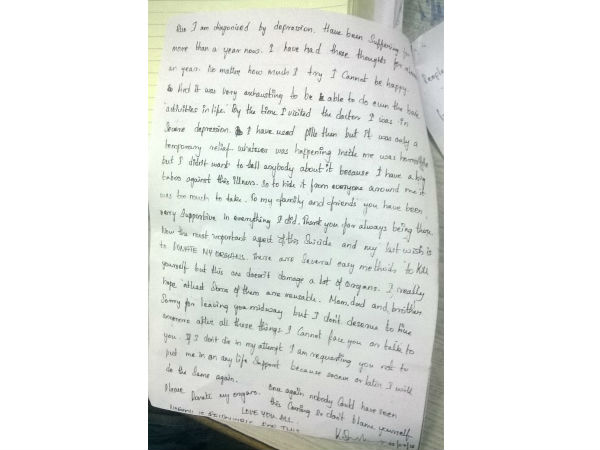 Also I am diagnosed by depression. Have been suffering
more than a year now. I have had these thoughts for
an year. No matter how much I try I cannot be happy.
It was very exhausting to be able to do even the basic
'activities in life'. By the time I visited the doctor I was in
Severe depression. I have used pills then but it was only a
temporary relief. Whatever was happening inside me was horrible
but I didn't want to tell anybody about it because I have a big
taboo against this illness. So to hide it from everyone around me it
was too much to take. To my family and friends you have been
very supportive in everything I did. Thank you for always being there.
Now the most important aspect of this suicide and my last wish is
to DONATE MY ORGANS. There are several easy methods to kill
yourself but this one doesn't damage a lot of organs. I really
hope atleast some of them are reusable. Mom, dad and brother
Sorry for leaving you midway but I don't deserve to live
anymore after all these things I cannot face you or talk to
you. If I don't die in my attempt I am requesting you not to
put me in on any life support because sooner or later I will
do the same again.
Please Donate my organs. Once again nobody could have seen
this coming so don't blame yourself
LOVE YOU ALL.